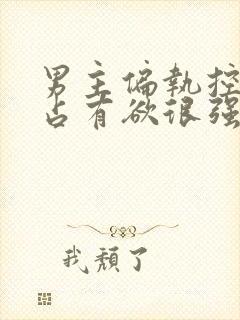 男主偏執控
占有欲很强
我頹了